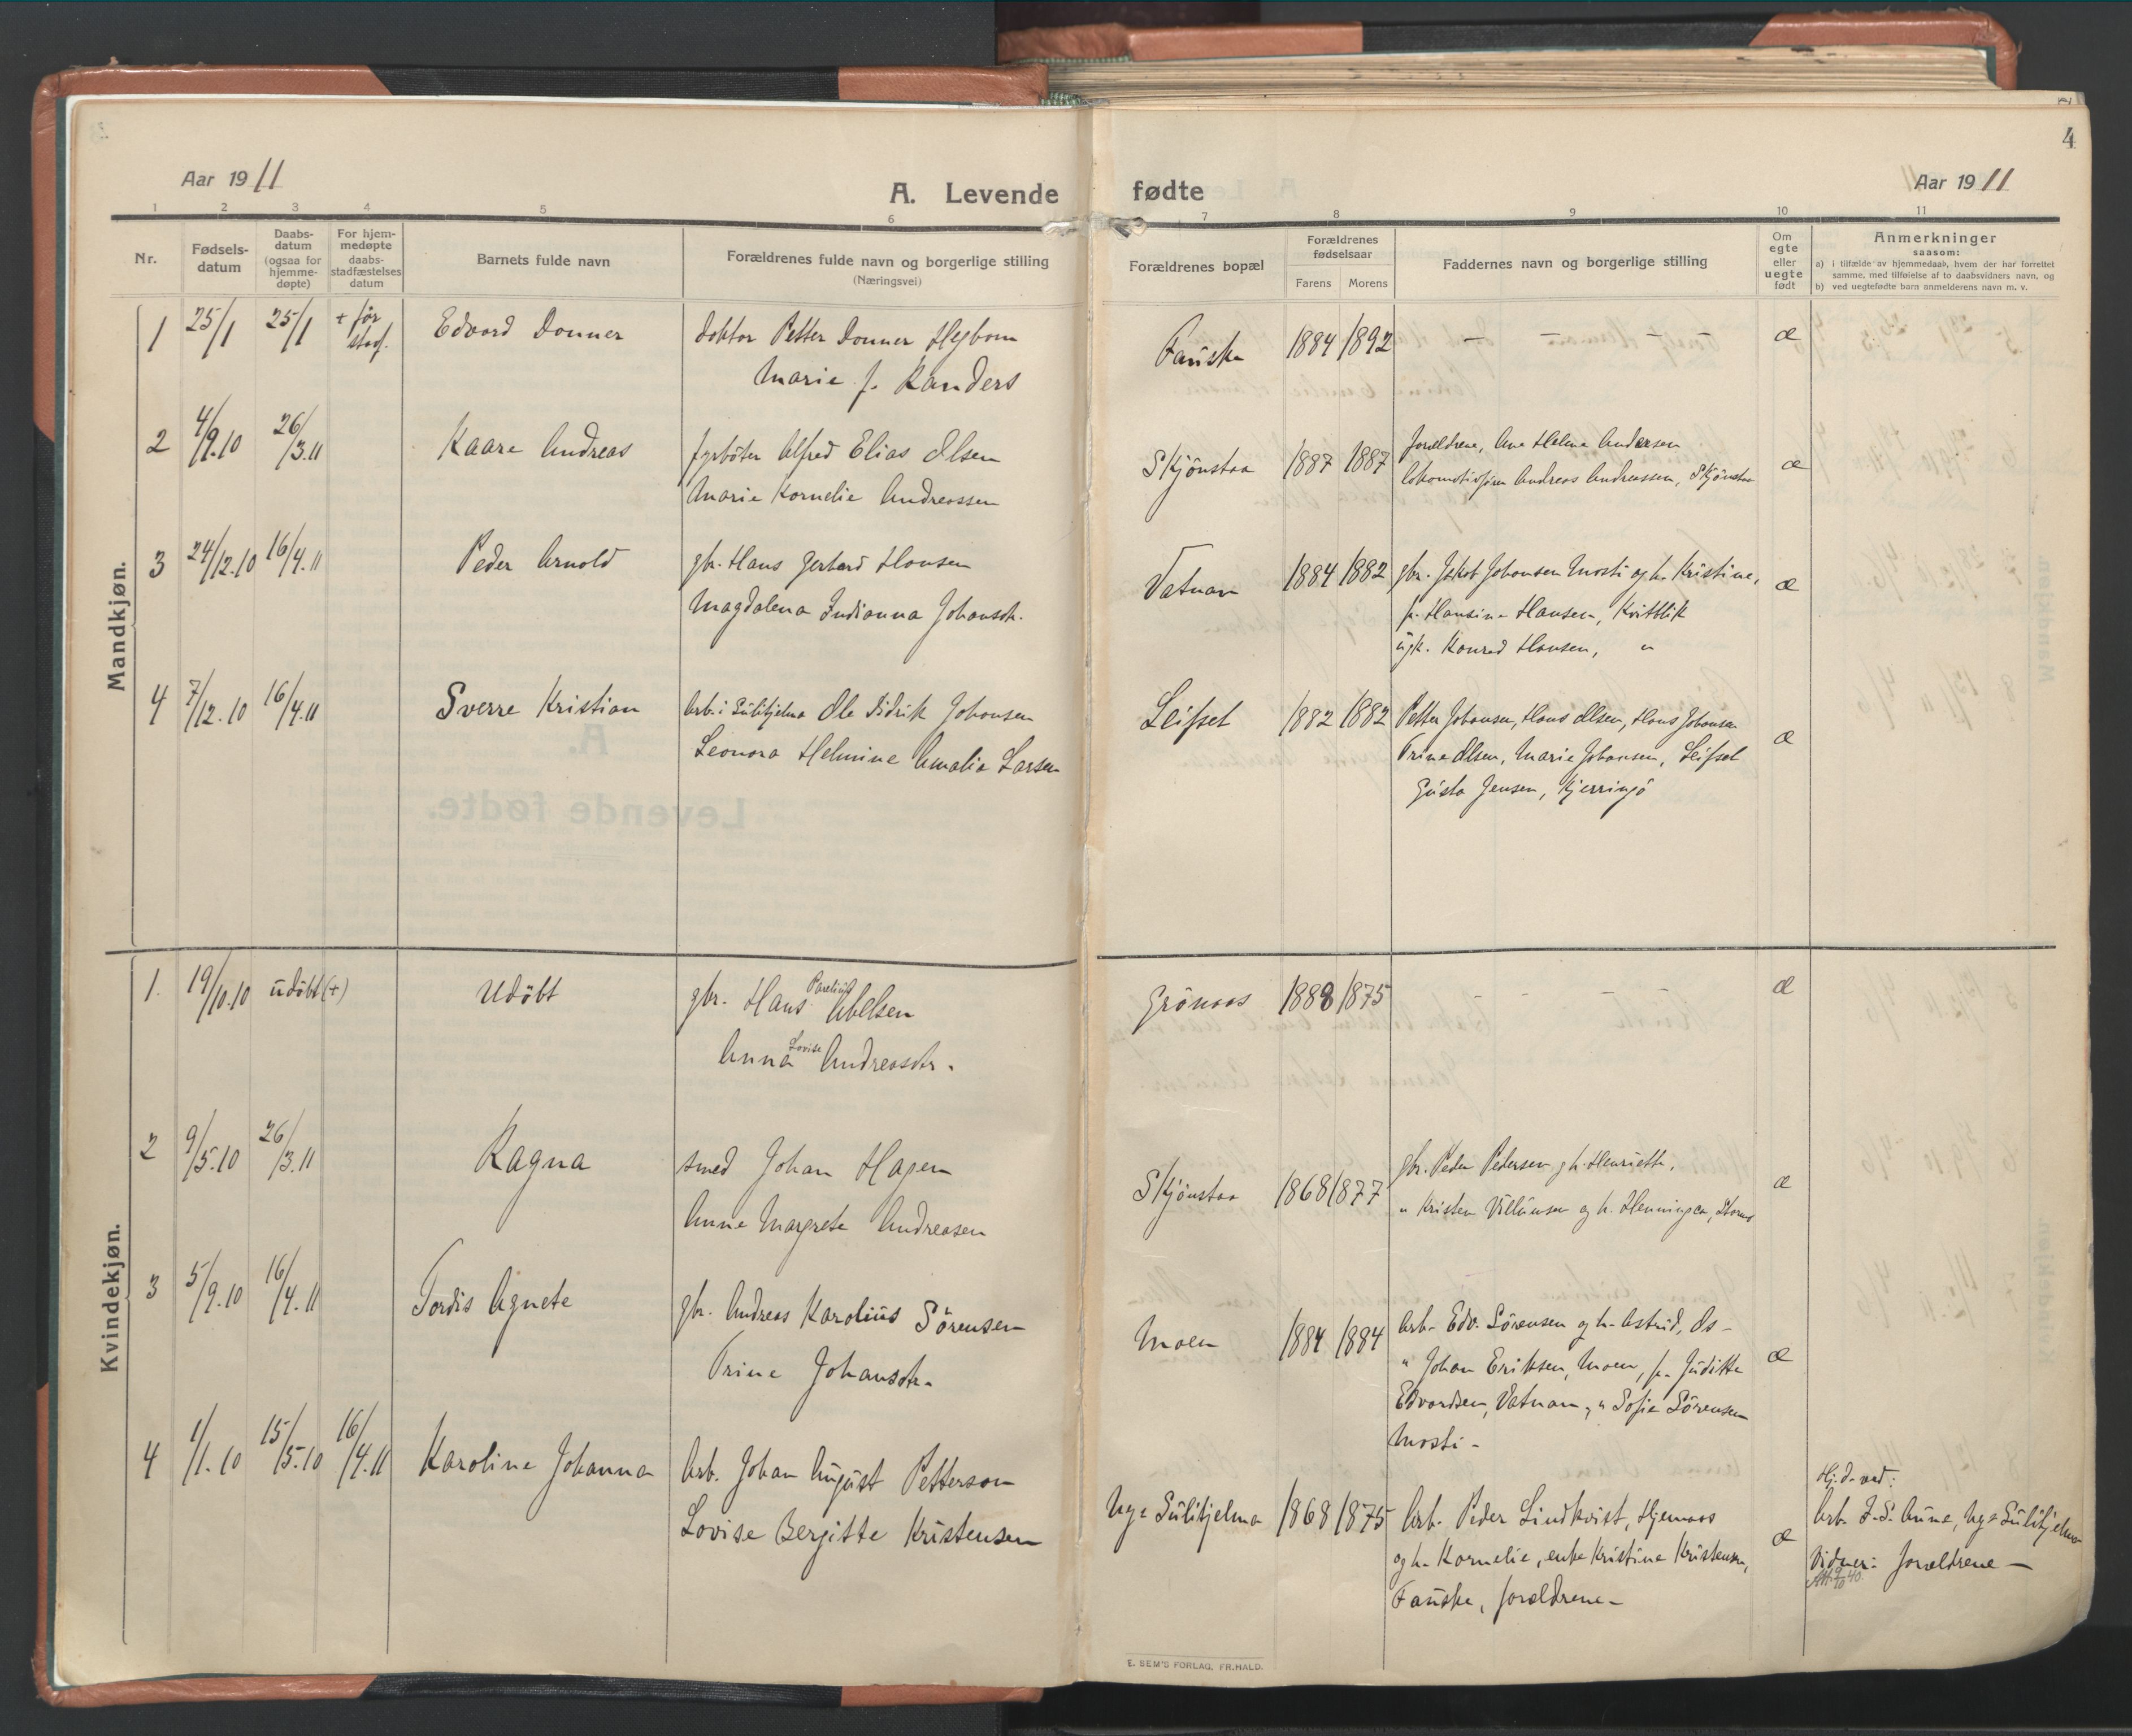 4
Aar 1911
A. Levende fødte
Aar 1911
1 2 3 4 5 6 7 8 9 10 11
Nr.
Fødsels-
datum
Daabs-
datum
(ogsaa for
hjemme-
døpte)
For hjem-
medøpte
daabs-
stadfæstelses
datum
Barnets fulde navn
Forældrenes fulde navn og borgerlige stilling
(Næringsvei)
Forældrenes bopæl
Forældrenes
fødselsaar
Farens Morens
Faddernes navn og borgerlige stilling
Om
egte
eller
uegte
født
Anmerkninger
saasom:
a) i tilfælde av hjemmedaab, hvem der har forrettet
samme, med tilføielse af to daabsvidners navn, og
b) ved uegtefødte barn anmelderens navn m. v.
Mandkjøn.
1 25/1 25/1 + før
stadf.
Edvard Donner
doktor Petter Donner Hegbom
Marie f. Randers
Fauske 1884 1892 - - - æ
2 4/9.10 26/3.11 Kaare Andreas
fyrbøter Alfred Elias Olsen
Marie Kornelie Andreassen
Skjönstaa 1887 1887
forældrene, Ane Helene Andersen
lokomotivfører Andreas Andreassen, Skjönstaa
æ
3 24/12.10 16/4.11 Peder Arnold
gbr. Hans Gerhard Hansen
Magdalena Indianna Johansdtr.
Vatnan 1884 1882
gbr. Jakob Johansen Mosti og h. Kristine,
p. Hansine Hansen, Kvitblik
ugk. Konrad Hansen, "
æ
4 7/12.10 16/4.11 Sverre Kristian
Arb. i Sulitjelma Ole Didrik Johansen
Leonora Helmine Amalia Larsen
Leifset 1882 1882
Petter Johansen, Hans Olsen, Hans Johansen
Trine Olsen, Marie Johansen, Leifset
Gusta Jensen, Kjerringö
æ
Kvindekjøn.
1. 19/10.10 udöbt (+) Udöbt
gbr. Hans Parelius Abelsen
Anna Lovise Andreasdtr.
Grönaas 1888 1875 - - - æ
2 9/5.10 26/3.11 Ragna
smed Johan Hagen
Anne Margrete Andreasen
Skjönstaa 1868 1877
gbr. Peder Pedersen og h. Henriette,
" Kristen Villumsen og h. Henningea,
æ
3 5/9.10 16/4.11 Tordis Agnete
gbr. Andreas Karolius Sörensen
Trine Johansdtr.
Moen 1884 1884
Arb. Edv. Sörensen og h. Astrid, Os -
" Johan Eriksen, Moen, p. Juditte
Edvardsen, Vatnan, " Sofie Sörensen
Mosti -
æ
4 1/1.10 15/5.10 16/4.11 Karoline Johanna
Arb. Johan August Petterson
Lovise Bergitte Kristensen
Nye Sulitjelma 1868 1875
Arb. Peder Lindkvist, Hjemaas
og h. Kornelie, enke Kristine Kristensen,
Fauske, forældrene -
æ
Hj.d. ved:
Arb. J. S. Aune, Nye Sulitjelma
Vidner: forældrene -
E. SEM'S FORLAG, FR.HALD.